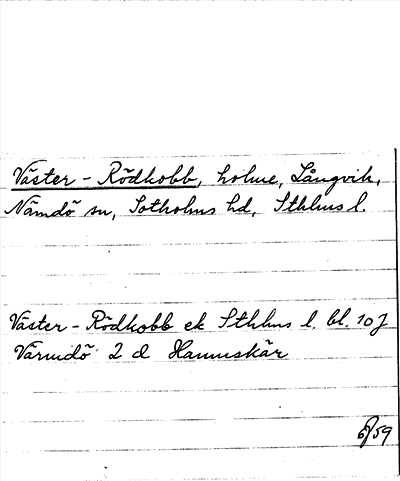 Väster - Rödkobb, holme, Långvik,
Nämdö sn, Sotholms hd, Sthlms l.
Väster - Rödkobb ek Sthlms l. bl. 10 J
Värmdö 2 d Hamnskär
59